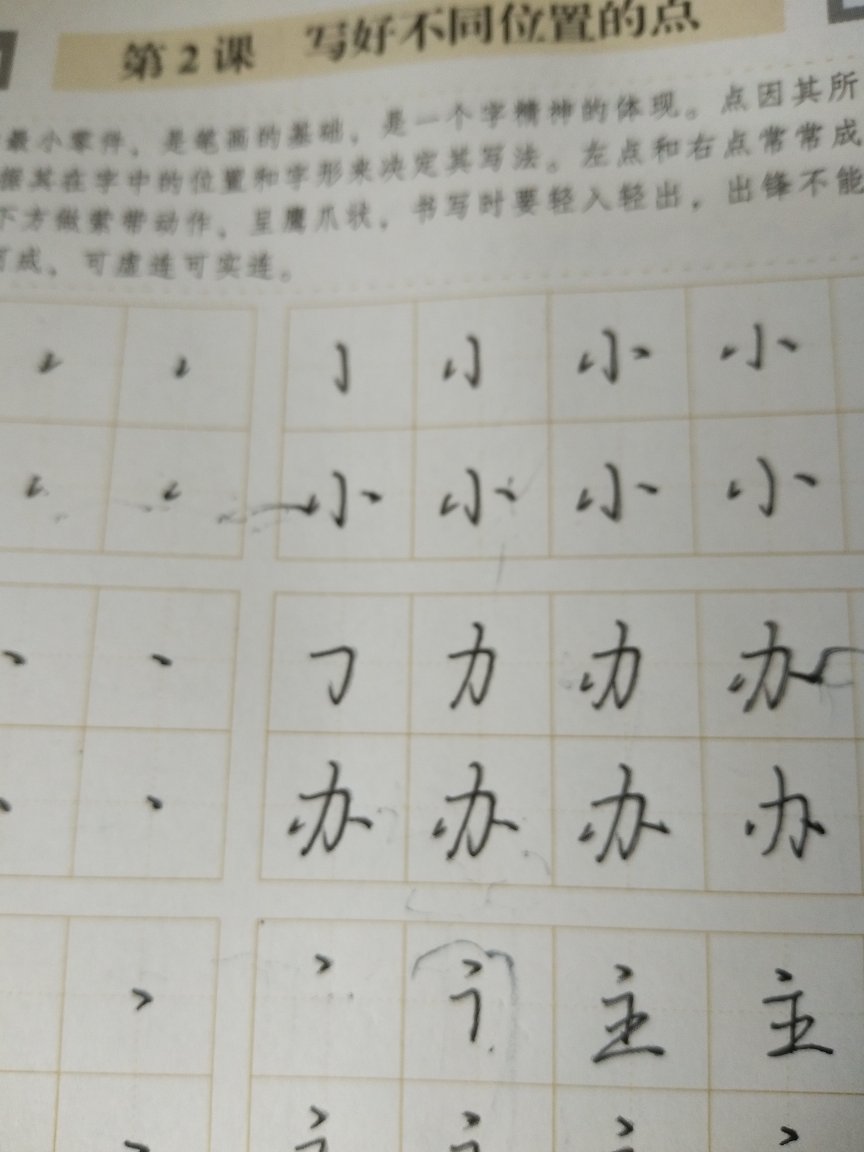 第2课 写好不同位置的点
最小零件，是笔画的基础，是一个字精神的体现。点因其所
据其在字中的位置和字形来决定其写法。左点和右点常常成
下方做萦带动作，呈鹰爪状，书写时要轻入轻出，出锋不能
可成，可虚连可实连。
小 小
小 小 小 小
力 办
办 办 办 办
主 主